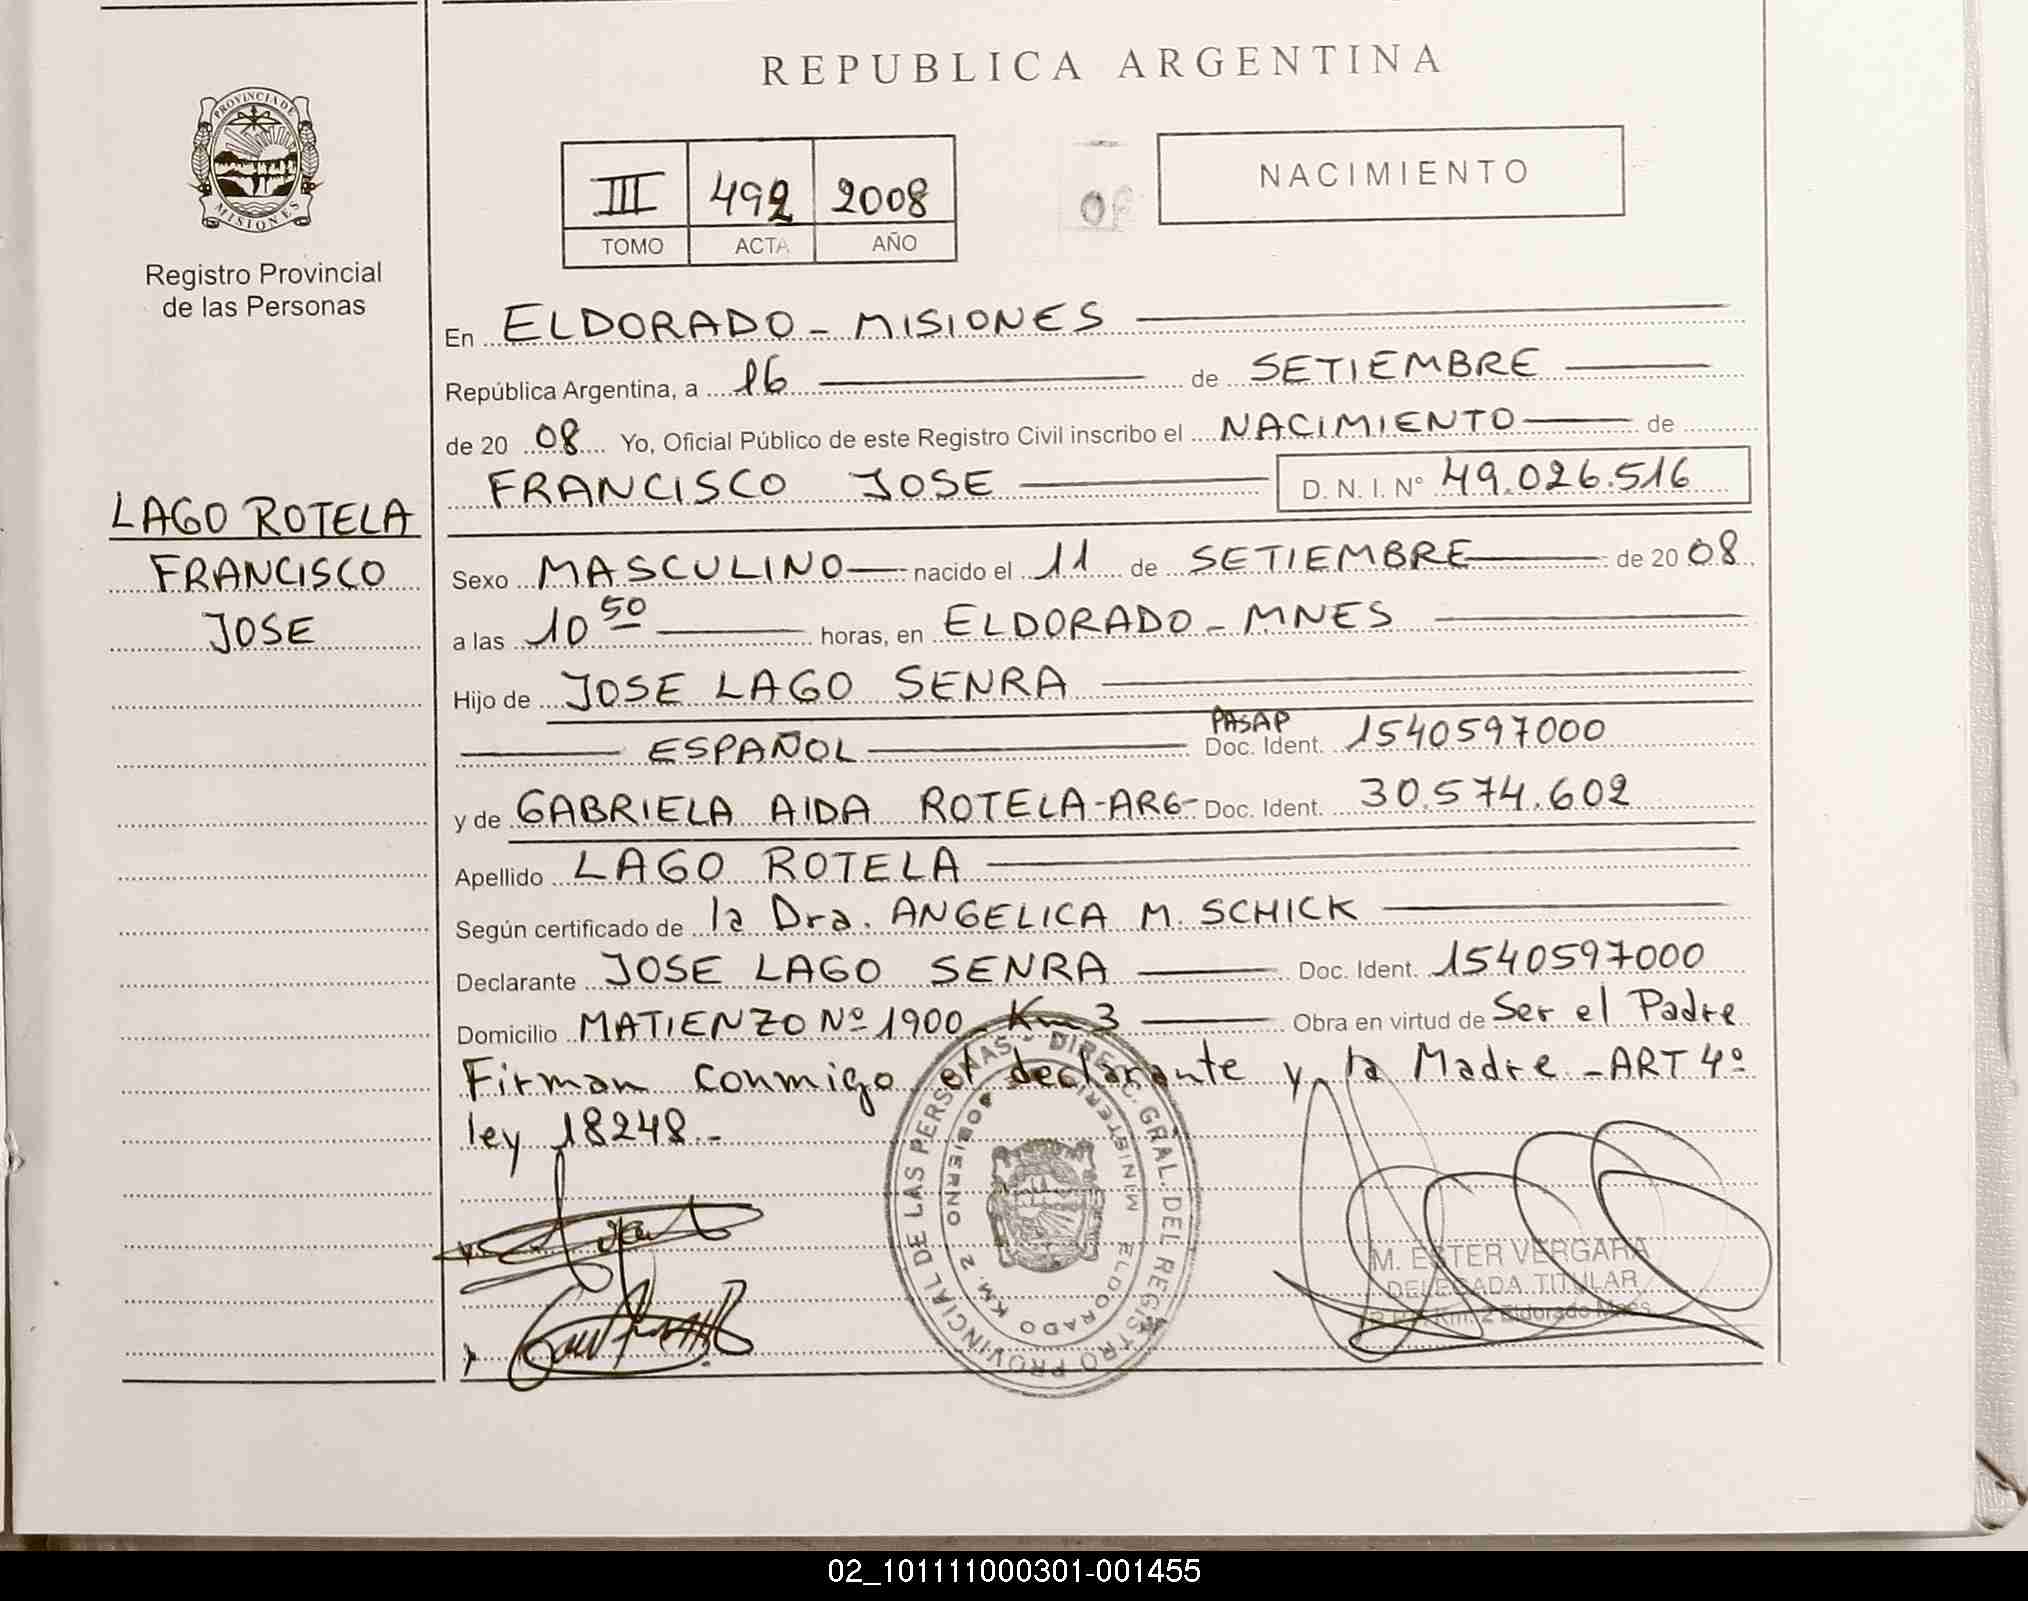 REPUBLICA ARGENTINA
PROVINCIA DE
MISIONES
Registro Provincial
de las Personas
III 492 2008
TOMO ACTA AÑO
NACIMIENTO
En ELDORADO - MISIONES
República Argentina, a 16 de SETIEMBRE
de 20 08 Yo, Oficial Público de este Registro Civil inscribo el NACIMIENTO de
FRANCISCO JOSE D. N. I. N° 49.026.516
LAGO ROTELA
FRANCISCO
JOSE
Sexo MASCULINO nacido el 11 de SETIEMBRE de 20 08
a las 10 50 horas, en ELDORADO - MNES
Hijo de JOSE LAGO SENRA
ESPAÑOL PASAP Doc. Ident. 1540597000
y de GABRIELA AIDA ROTELA-ARG- Doc. Ident. 30.574.602
Apellido LAGO ROTELA
Según certificado de la Dra. ANGELICA M. SCHICK
Declarante JOSE LAGO SENRA Doc. Ident. 1540597000
Domicilio MATIENZO Nº 1900 - Km 3 Obra en virtud de Ser el Padre
Firman conmigo el declarante y la Madre - ART 4º
ley 18248.-
DIREC. GRAL. DEL REGISTRO PROVINCIAL DE LAS PERSONAS
MINISTERIO GOBIERNO
ELDORADO KM. 2
M. ESTER VERGARA
DELEGADA TITULAR
Km. 2 Eldorado Mnes
02_101111000301-001455